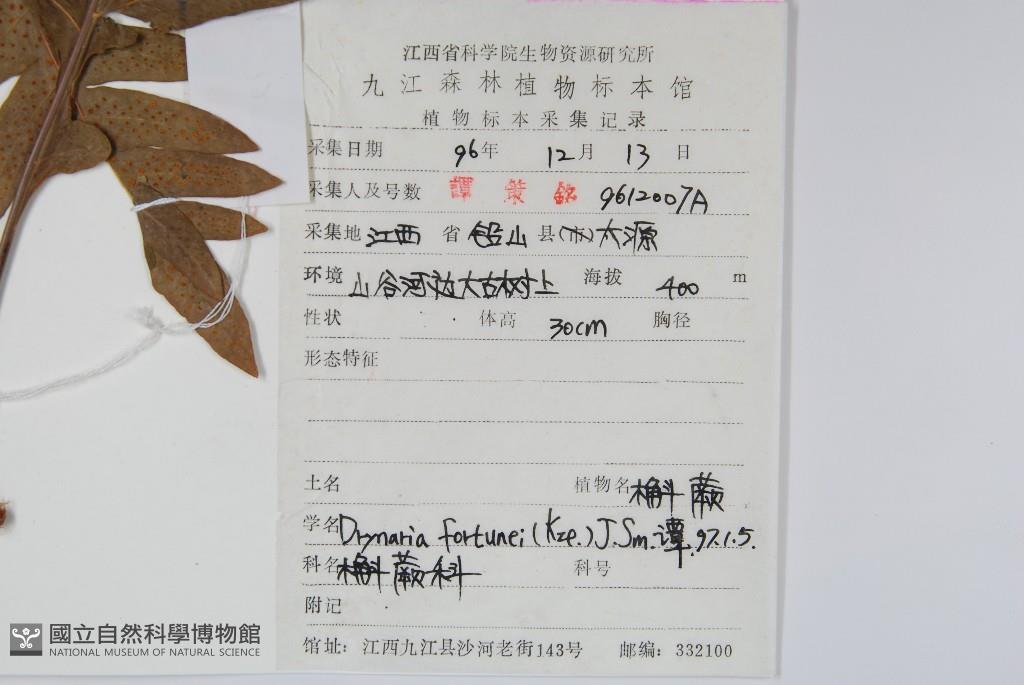 江西省科学院生物资源研究所
九江森林植物标本馆
植物标本采集记录
采集日期 96年 12月 13日
采集人及号数 譚策銘 9612007A
采集地 江西 省 铅山 县(市) 太源
环境 山谷河边大古树上 海拔 400 m
性状 体高 30cm 胸径
形态特征
土名 植物名 槲蕨
学名 Drynaria fortunei (Kze.) J.Sm. 谭.97.1.5.
科名 槲蕨科 科号
附记
馆址：江西九江县沙河老街143号 邮编：332100
國立自然科學博物館
NATIONAL MUSEUM OF NATURAL SCIENCE